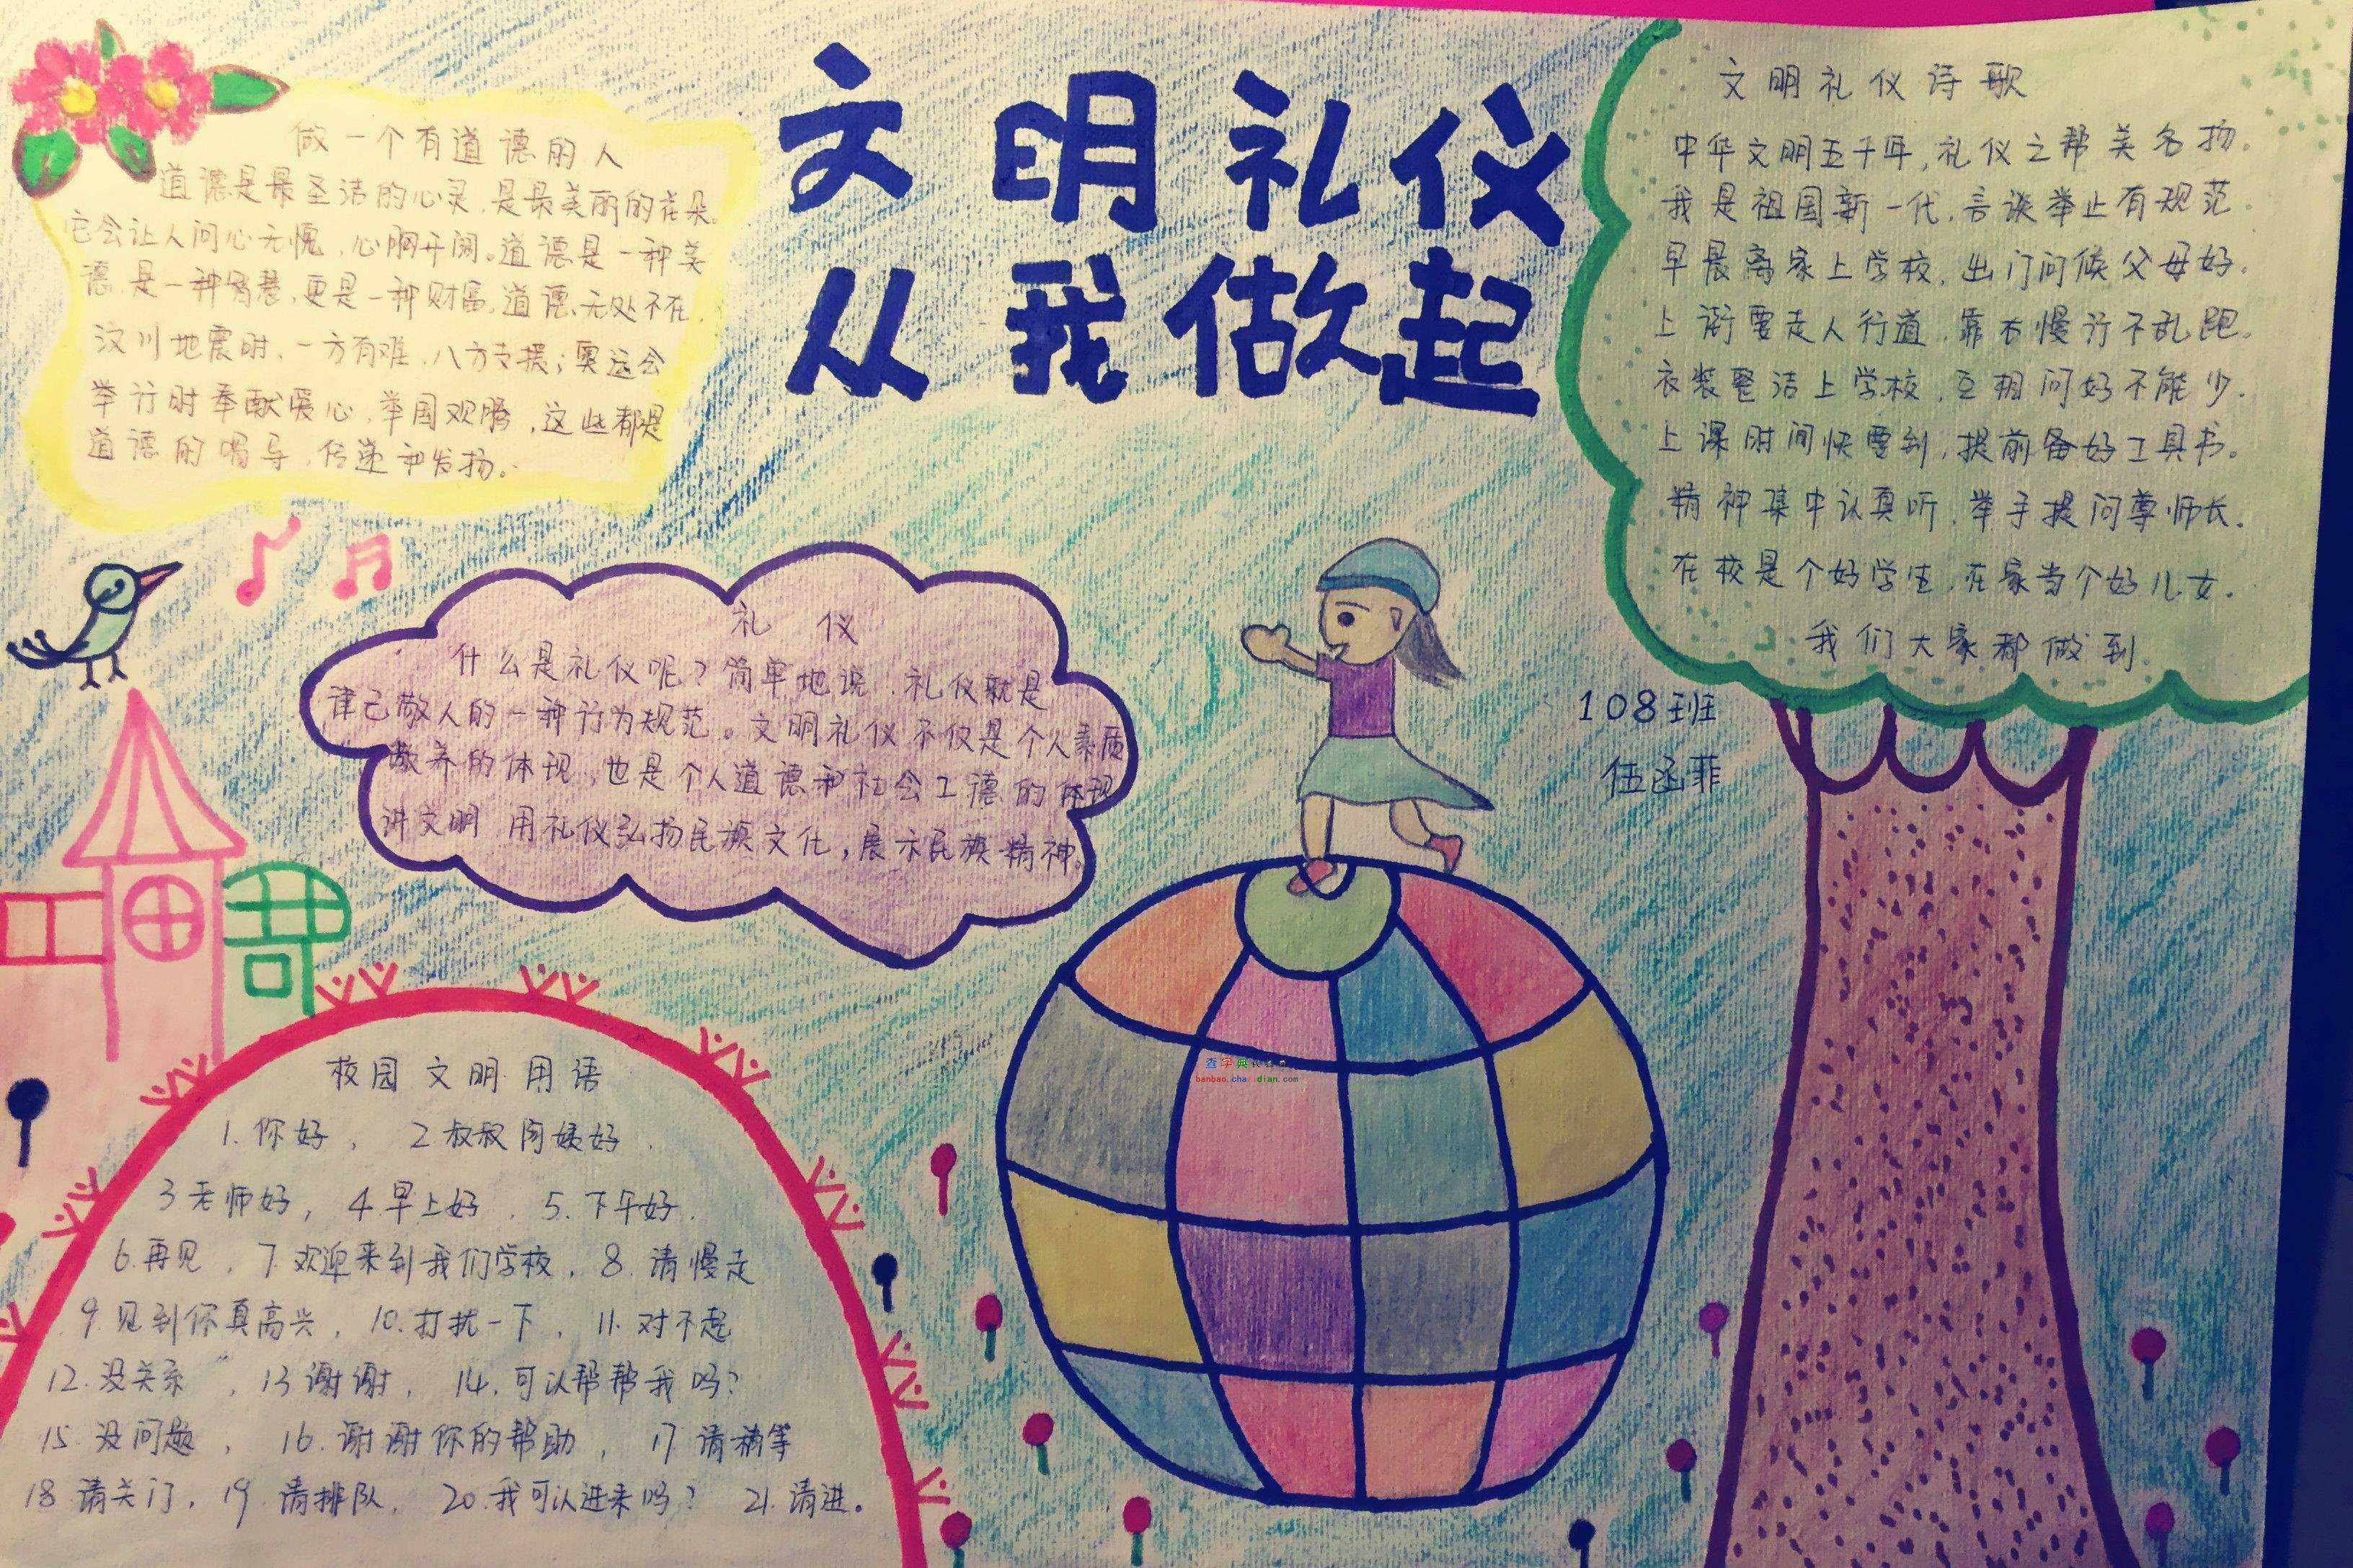 文明礼仪
从我做起
做一个有道德的人
道德是最圣洁的心灵,是最美丽的花朵,
它会让人问心无愧,心胸开阔。道德是一种美
德,是一种智慧,更是一种财富,道德无处不在,
汶川地震时,一方有难,八方支援;奥运会
举行时奉献爱心,举国欢腾,这些都是
道德的倡导,传递和发扬。
礼仪
什么是礼仪呢?简单地说,礼仪就是
律己敬人的一种行为规范。文明礼仪不仅是个人素质
教养的体现,也是个人道德和社会工德的体现
讲文明 用礼仪弘扬民族文化,展示民族精神。
文明礼仪诗歌
中华文明五千年,礼仪之帮美名扬.
我是祖国新一代,言谈举止有规范.
早晨离家上学校,出门问候父母好.
上街要走人行道,靠右慢行不乱跑.
衣装整洁上学校,互相问好不能少.
上课时间快要到,提前备好工具书。
精神集中认真听,举手提问尊师长.
在校是个好学生,在家当个好儿女.
我们大家都做到
108班
伍函菲
校园文明用语
1.你好, 2叔叔阿姨好.
3老师好, 4早上好. 5.下午好.
6.再见, 7.欢迎来到我们学校, 8.请慢走
9.见到你真高兴, 10.打扰一下, 11.对不起
12.没关系, 13谢谢, 14,可以帮帮我吗?
15 没问题, 16.谢谢你的帮助, 17请稍等
18请关门, 19 请排队, 20.我可以进来吗? 21.请进。